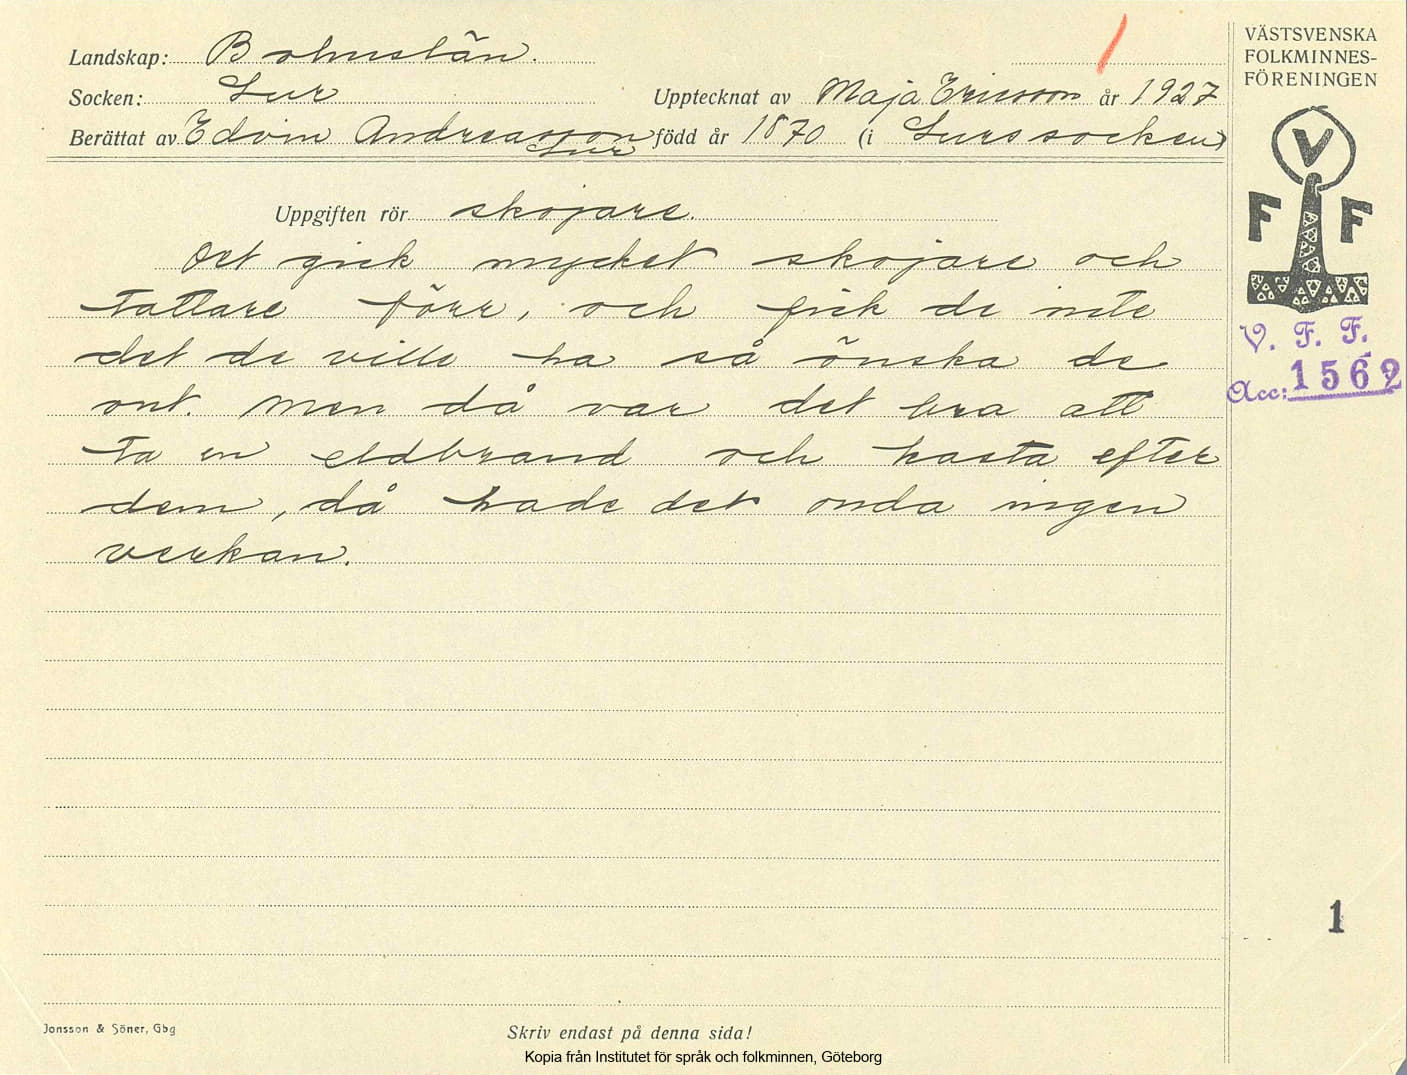 Landskap: Bohuslän.
Socken: Lur
Upptecknat av Maja Ericsson år 1927
Berättat av Edvin Andreasson född år 1870 (i Lurs socken)
Lur
Uppgiften rör skojare.
Det gick mycket skojare och
tattare förr, och fick de inte
det de ville ha så önska de
ont. Men då var det bra att
ta en eldbrand och kasta efter
dem, då hade det onda ingen
verkan.
VÄSTSVENSKA
FOLKMINNES-
FÖRENINGEN
V
F F
V. F. F.
Acc: 1562
1
Jonsson & Söner, Gbg
Skriv endast på denna sida!
Kopia från Institutet för språk och folkminnen, Göteborg